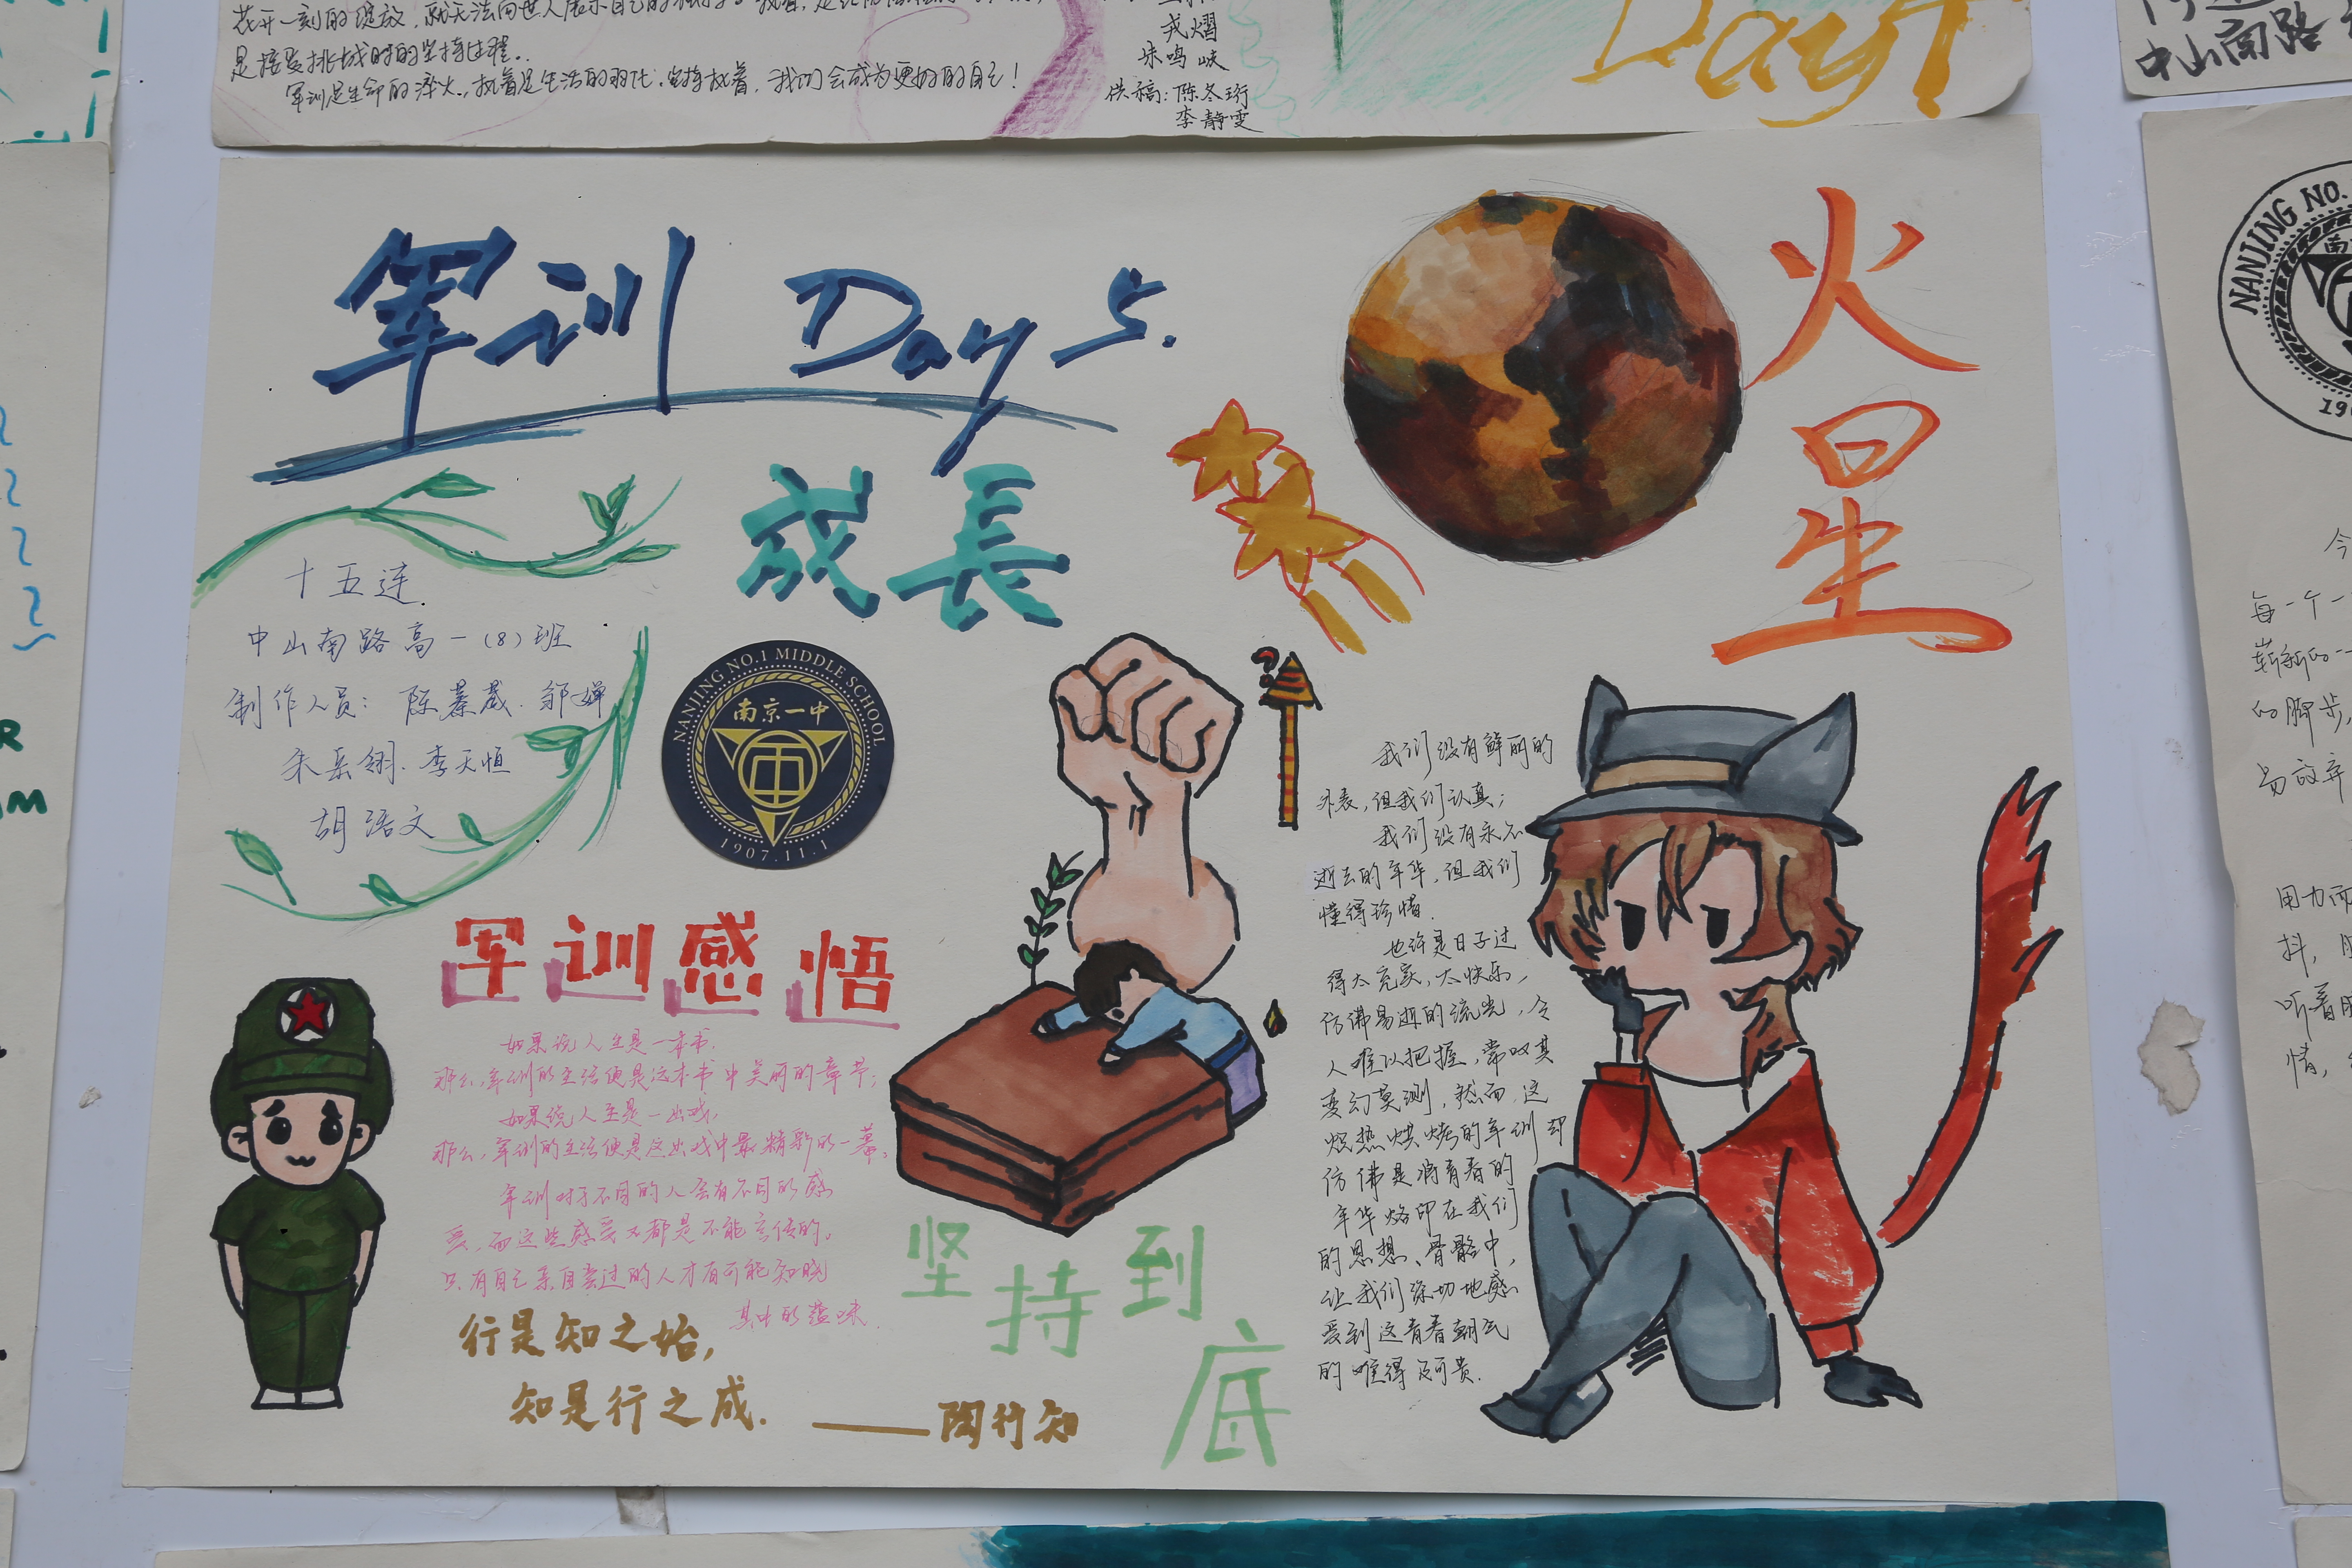 是接受挑战时的坚持过程。
军训是生命的淬火，执着是生活的羽化。坚持执着，我们会成为更好的自己！
朱鸣峡
供稿：陈冬珩
李静雯
Day1
中山南路
军训 Day 5.
成長
火星
十五连
中山南路高一（8）班
制作人员：陈蓁葳、邹婵
朱岳翎、李天恒
胡语文
NANJING NO.1 MIDDLE SCHOOL
南京一中
1907.11.1
军训感悟
如果说人生是一本书，
那么，军训的生活便是这本书中美丽的章节；
如果说人生是一出戏，
那么，军训的生活便是这出戏中最精彩的一幕。
军训对于不同的人会有不同的感
受，而这些感受又都是不能言传的。
只有自己亲自尝过的人才有可能知晓
其中的蕴味
行是知之始，
知是行之成．
——陶行知
坚持到底
?
我们没有鲜丽的
外表，但我们认真；
我们没有永不
逝去的年华，但我们
懂得珍惜．
也许是日子过
得太充实，太快乐，
仿佛易逝的流光，令
人难以把握，常叹其
变幻莫测，然而，这
炽热烘烤的军训却
仿佛是将青春的
年华烙印在我们
的思想、骨骼中，
让我们深切地感
受到这青春朝气
的难得及可贵．
NANJING NO.
每一个一
崭新的一
的脚步，
听着